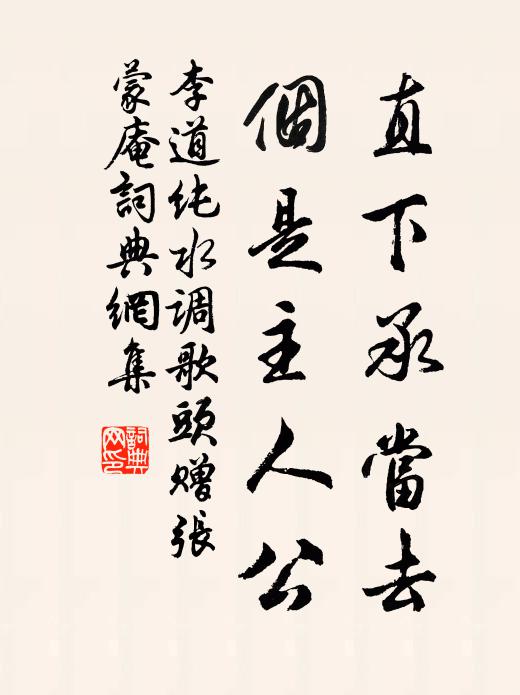 直下承當去
個是主人公
李道純水調歌頭贈張
蒙庵詞典網集
詞典
网印